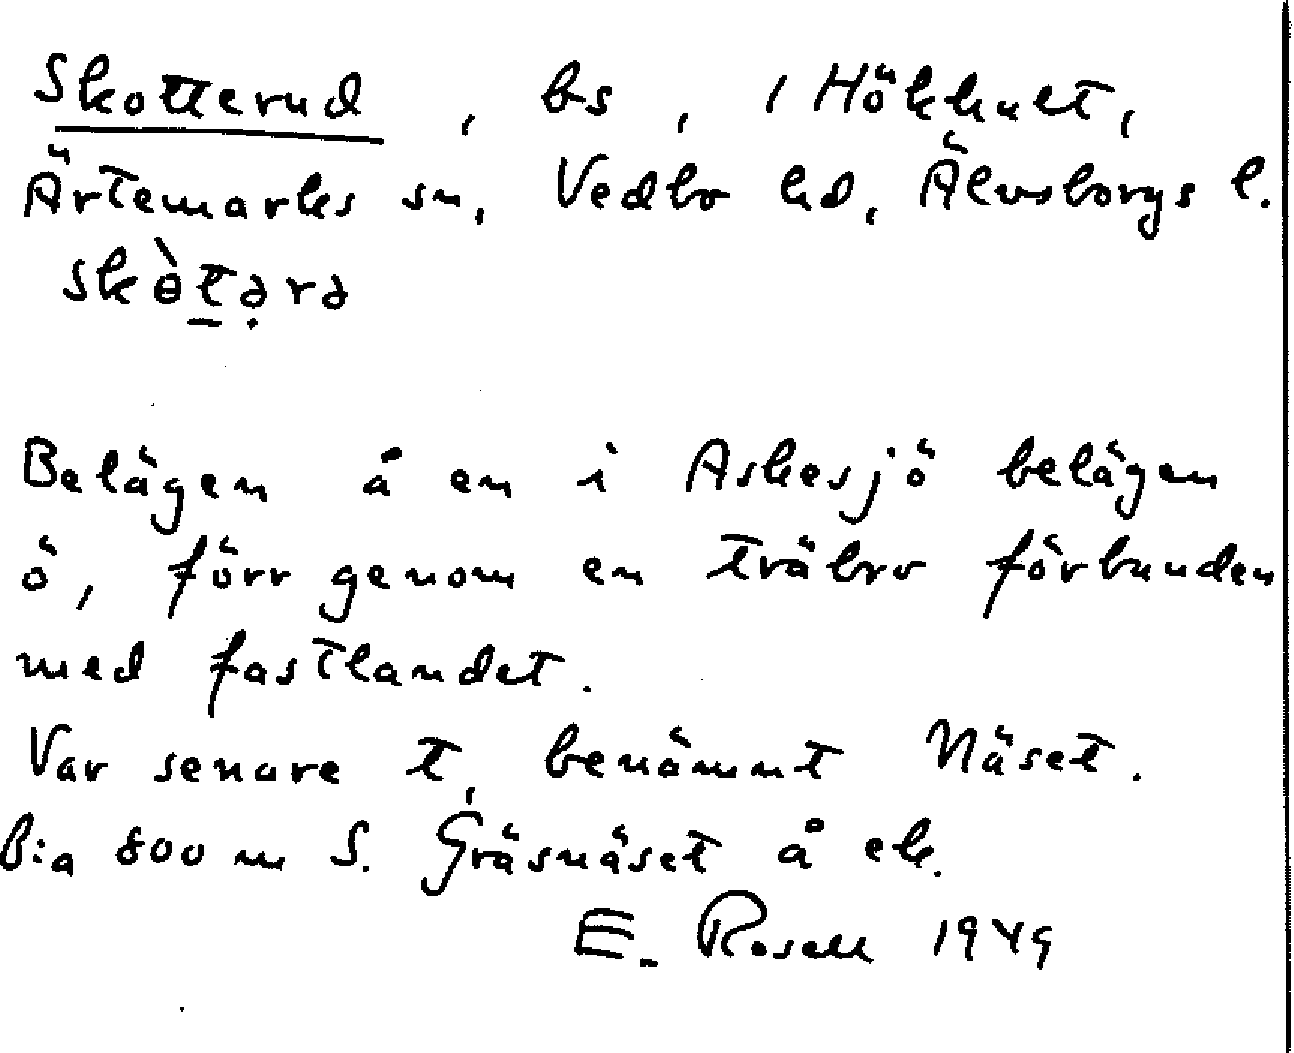 Skotterud, bs, i Hökhult,
Ärtemarks sn, Vedbo hd, Älvsborgs l.
skὸt̲ə̣rə
Belägen å en i Askesjö belägen
ö, förr genom en träbro förbunden
med fastlandet.
Var senare t, benämnt Näset.
B:a 800 m S. Gräsnäset å ek.
E. Rosell 1949